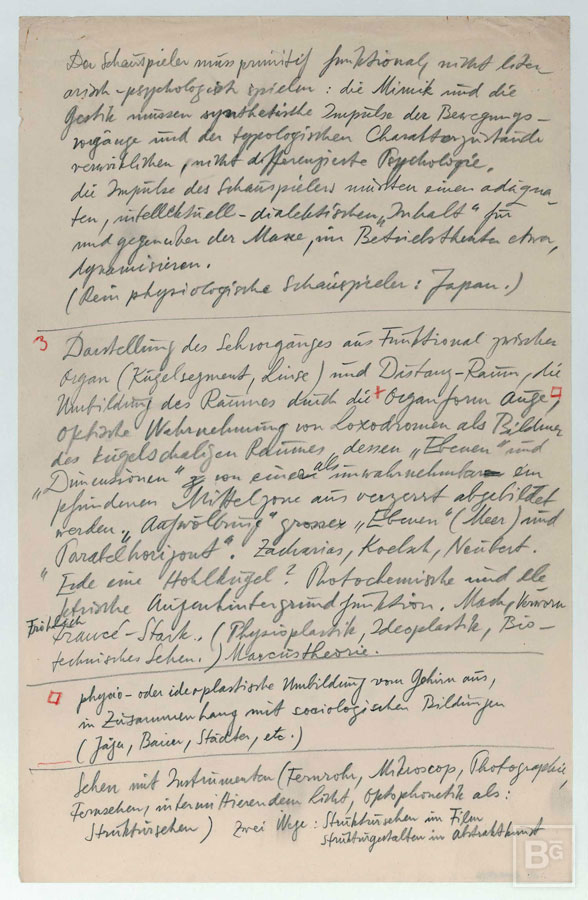 Der Schauspieler muss primitif funktional, nicht liter
arisch-psychologisch spielen: die Mimik und die
Gestik müssen synthetische Impulse der Bewegungs-
vorgänge und der typologischen Charakterzustände
verwirklichen, nicht differenzierte Psychologie.
die Impulse des Schauspielers müssten einen adäqua-
ten, intellektuell-dialektischen „Inhalt" für
und gegenüber der Masse, im Betriebstheater etwa,
dynamisieren.
(Rein physiologische Schauspieler: Japan.)
3 Darstellung des Sehvorganges aus Funktional zwischen
Organ (Kugelsegment, Linse) und Distanz-Raum, die
Umbildung des Raumes durch die Organform Auge,
optische Wahrnehmung von Loxodromen als Bildner
des kugelschaligen Raumes, dessen „Ebenen" und
„Dimensionen" von einer als unwahrnehmbar em
pfundenen Mittelzone aus verzerrt abgebildet
werden, „Aufwölbung" grosser „Ebenen" (Meer) und
"Paralelhorizont". Zacharias, Koelsch, Neubert.
"Erde eine Hohlkugel? Photochemische und ele
ktrische Augenhintergrundfunktion. Mach, Verworn
Fröhlich
Francé-Stark. (Physioplastik, Ideoplastik, Bio-
technisches Sehen.) Marcustheorie.
physio- oder ideoplastische Umbildung vom Gehirn aus,
in Zusammenhang mit sociologischen Bildungen
(Jäger, Bauer, Städter, etc.)
Sehen mit Instrumenten (Fernrohr, Mikroscop, Photographie,
Fernsehen, intermittierendem Licht, Optophonetik als:
Struktursehen) Zwei Wege: Struktursehen im Film
Strukturgestalten in Abstraktkunst
BG